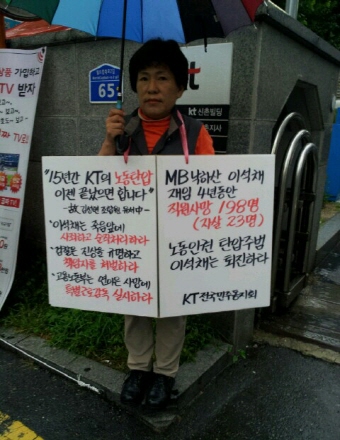 상품 가입하고
TV 받자
65
kt
kt 신촌빌딩
"15년간 KT의 노동탄압
이젠 끝났으면 합니다"
이석채는 죽음앞에
사죄하고
진상을 규명하고
책임자를 처벌하라
고용노동부는 연이은 사망에
특별근로감독 실시하라
MB낙하산 이석채
재임 4년동안
직원사망 198명
(자살 23명)
노동인권 탄압주범
이석채는 퇴진하라
KT전국민주동지회